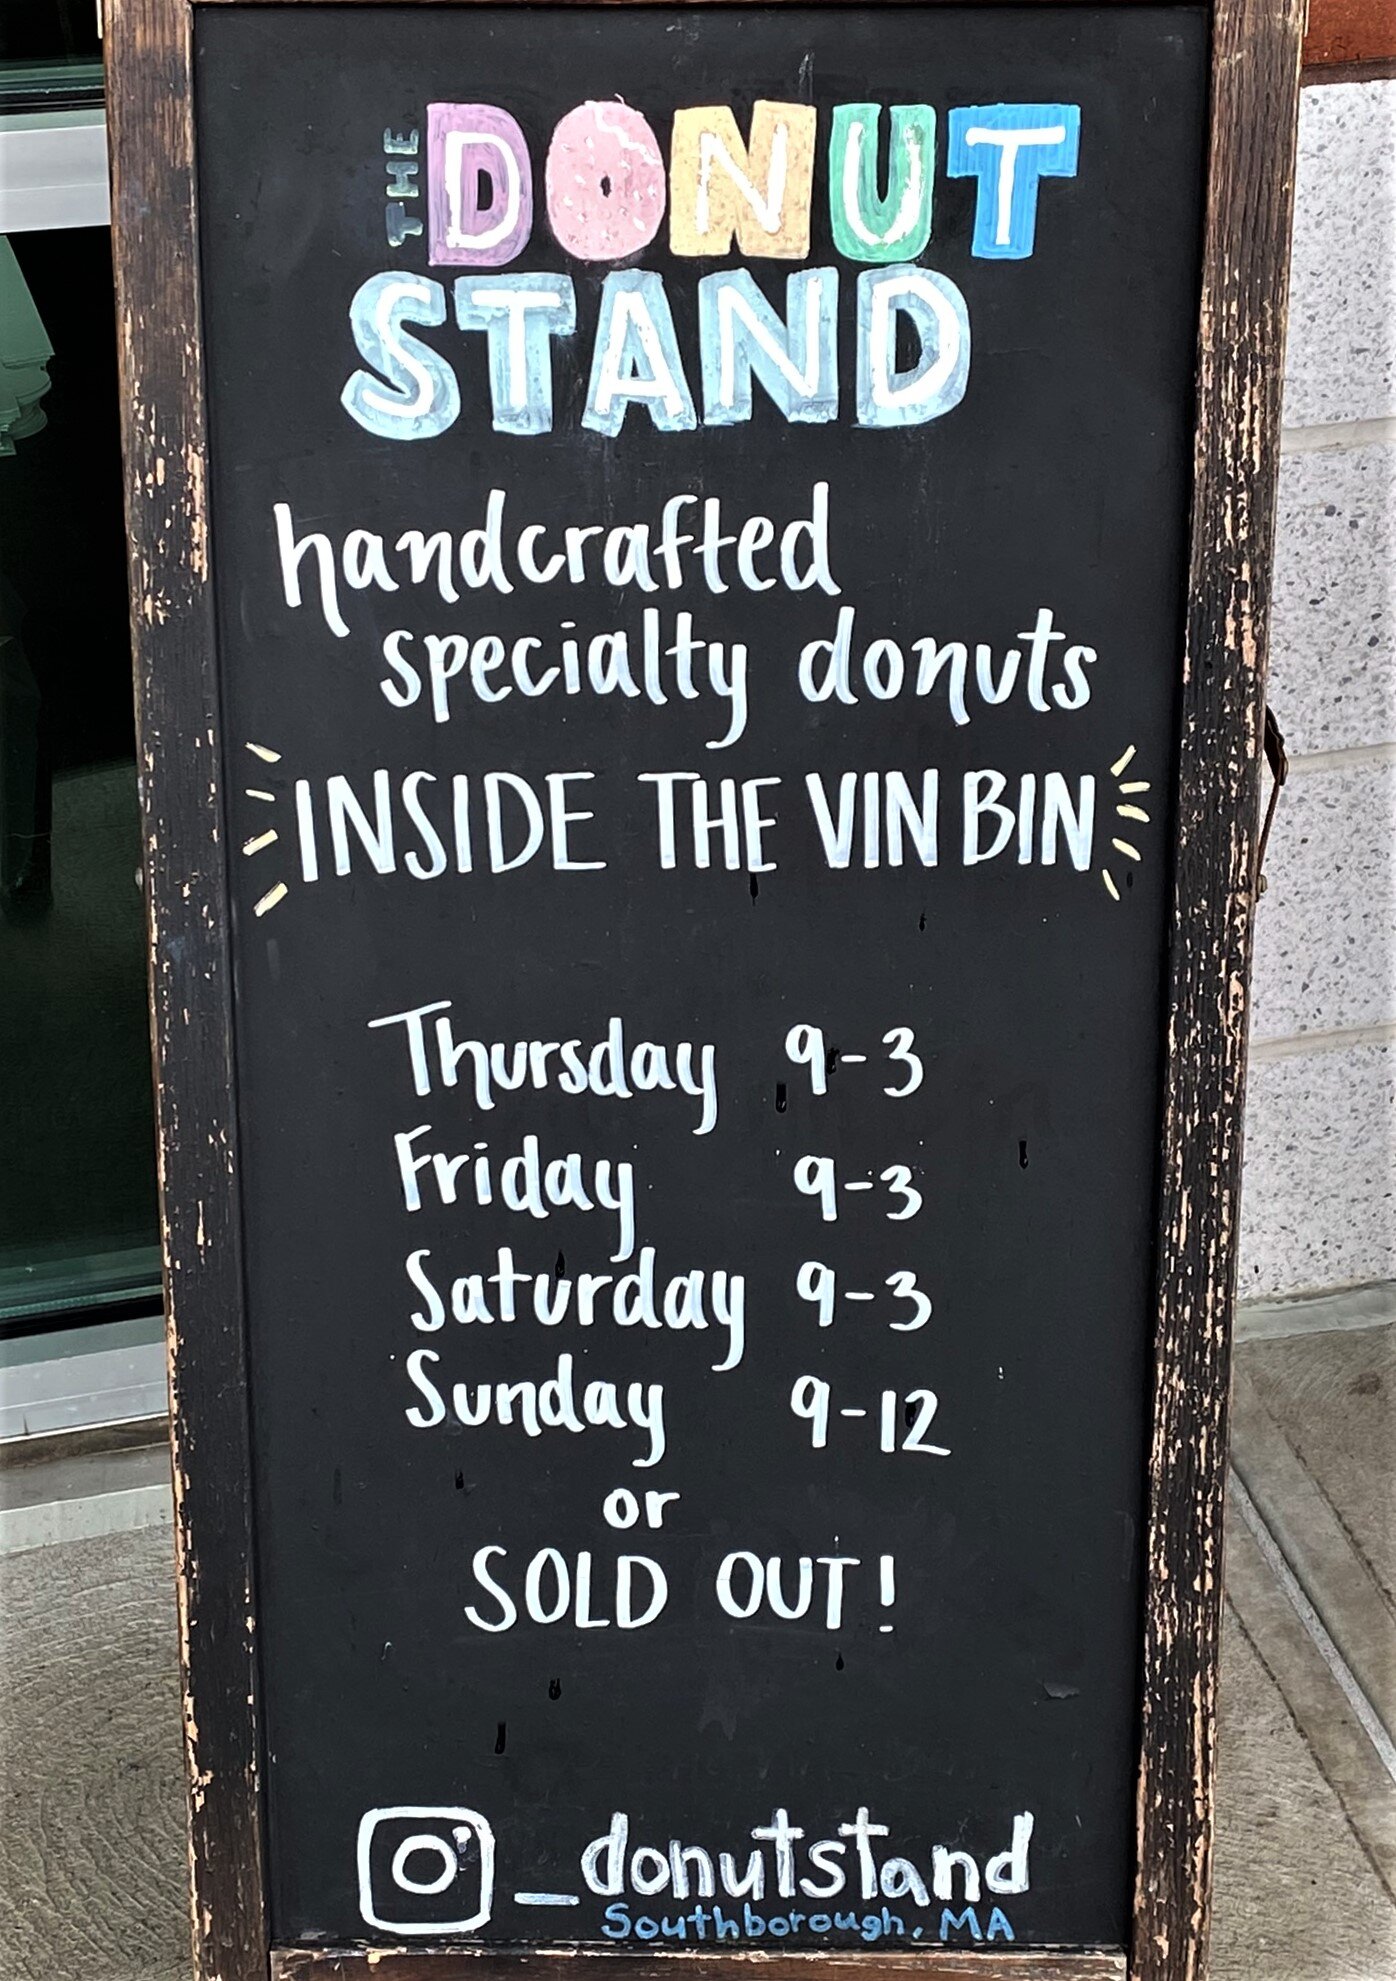 THE DONUT
STAND
handcrafted
specialty donuts
INSIDE THE VIN BIN
Thursday 9-3
Friday 9-3
Saturday 9-3
Sunday 9-12
or
SOLD OUT!
_donutstand
Southborough, MA